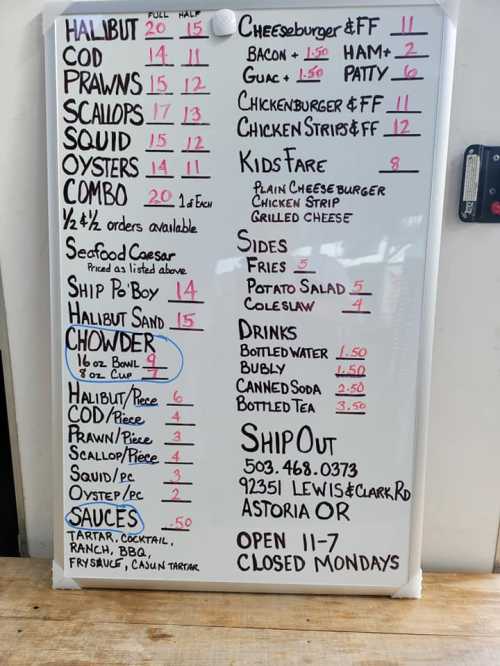 FULL HALF
HALIBUT 20 15
COD 14 11
PRAWNS 15 12
SCALLOPS 17 13
SQUID 15 12
OYSTERS 14 11
COMBO 20 1 of EACH
1/2 & 1/2 orders available
Seafood Caesar
Priced as listed above
SHIP PO'BOY 14
HALIBUT SAND 15
CHOWDER
16 oz BOWL 9
8 oz CUP 7
HALIBUT/Piece 6
COD/Piece 4
PRAWN/Piece 3
SCALLOP/Piece 4
SQUID/PC 3
OYSTEP/PC 2
SAUCES .50
TARTAR, COCKTAIL,
RANCH, BBQ,
FRYSAUCE, CAJUN TARTAR
CHEESEburger & FF 11
BACON + 1.50 HAM + 2
GUAC + 1.50 PATTY 6
CHICKENBURGER & FF 11
CHICKEN STRIPS & FF 12
KIDS FARE 8
PLAIN CHEESEBURGER
CHICKEN STRIP
GRILLED CHEESE
SIDES
FRIES 5
POTATO SALAD 5
COLESLAW 4
DRINKS
BOTTLED WATER 1.50
BUBLY 1.50
CANNED SODA 2.50
BOTTLED TEA 3.50
SHIP OUT
503.468.0373
92351 LEWIS & CLARK RD
ASTORIA OR
OPEN 11-7
CLOSED MONDAYS